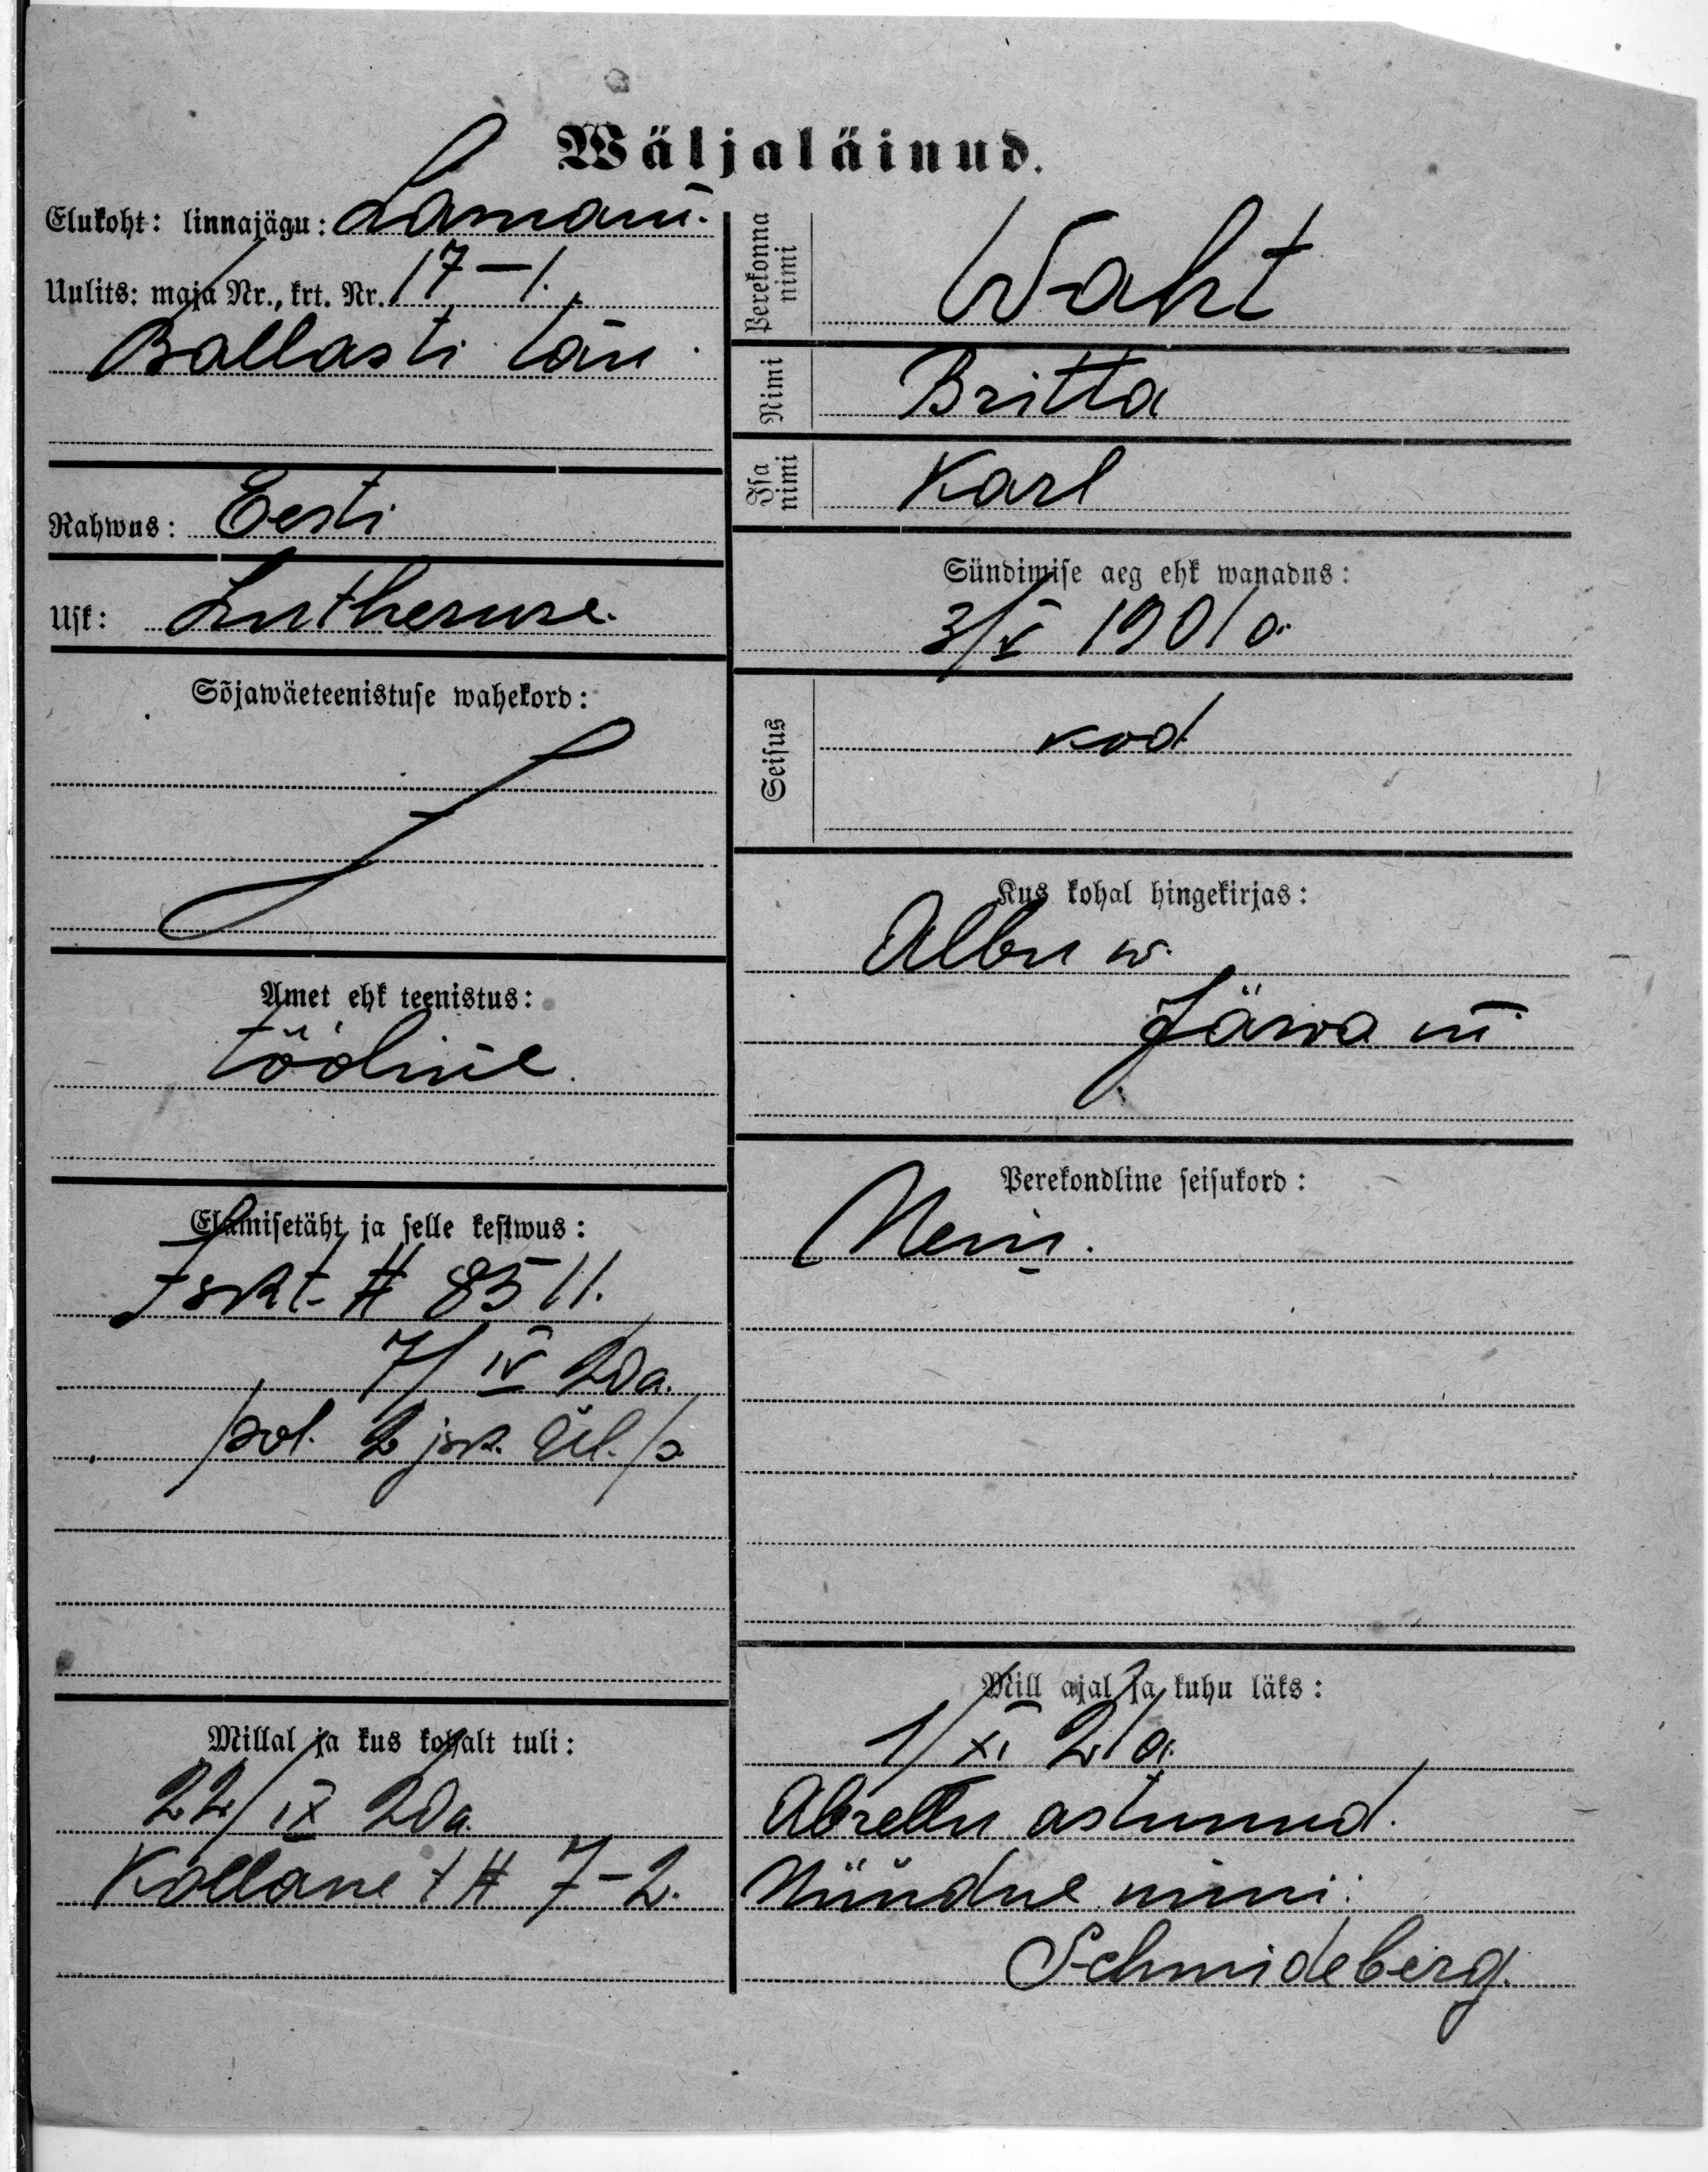 Wäljaläinud.
Elukoht: linnajägu: Lasnam.
Uulits: maja Nr., krt. Nr. 17-1.
Ballasti tän.
Rahwus: Eesti
Usk: Lutheruse.
Sõjawäeteenistuse wahekord:
Amet ehk teenistus:
tööline.
Elamisetäht ja selle kestwus:
Iskt. # 8511.
7/IV 20a.
pol. 2 jsk. Ül. p.
Millal ja kus kohalt tuli:
22/IX 20a.
Kollane t # 7-2.
Perekonna nimi
Waht
Nimi
Britta
Isa nimi
Karl
Sündimise aeg ehk wanadus:
3/V 1901 a.
Seisus
kod
Kus kohal hingekirjas:
Albu w.
Järwa m
Perekondline seisukord:
Neiu.
Mill ajal ja kuhu läks:
1/XI 21a.
Abiellu astunud.
Nüüdne nimi:
Schmideberg.